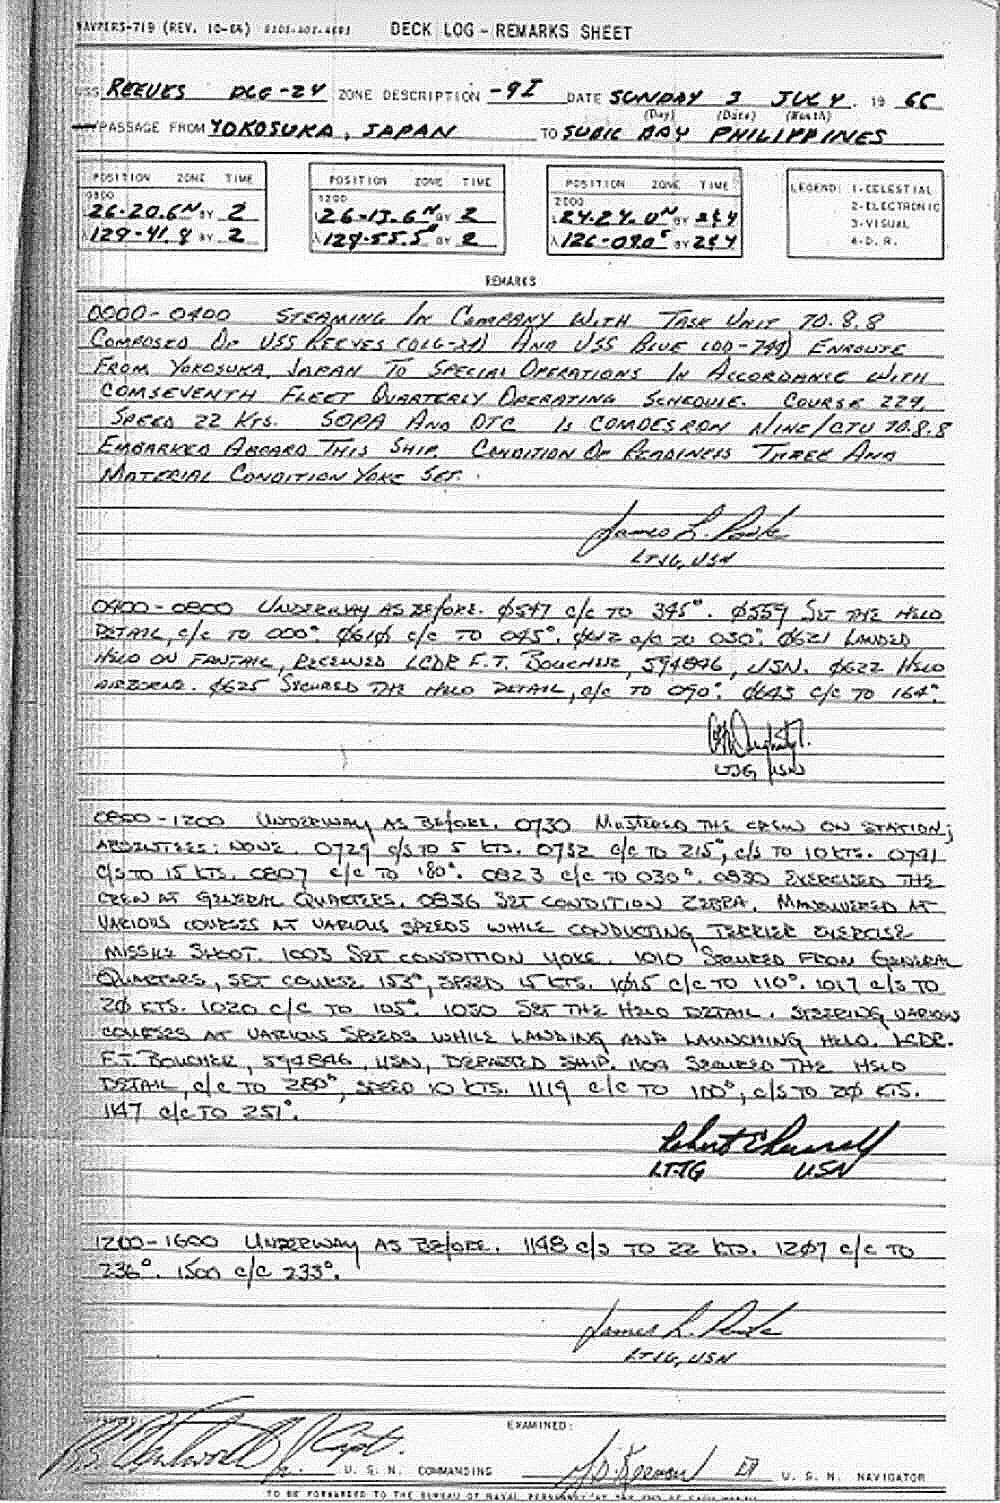 NAVPERS-719 (REV. 10-64) DECK LOG - REMARKS SHEET
USS REEVES DLG-24 ZONE DESCRIPTION -9I DATE SUNDAY 3 JULY 19 66
(Day) (Date) (Month)
PASSAGE FROM YOKOSUKA, JAPAN TO SUBIC BAY PHILIPPINES
POSITION ZONE TIME POSITION ZONE TIME POSITION ZONE TIME LEGEND: 1-CELESTIAL
0800 1200 2000 2-ELECTRONIC
26-20.6N BY 2 26-13.6N BY 2 L24-24.0N BY 2&4 3-VISUAL
λ129-41.8 BY 2 λ129-55.5E BY 2 λ126-09.0E BY 2&4 4-D.R.
REMARKS
0000-0400 STEAMING IN COMPANY WITH TASK UNIT 70.8.8
COMPOSED OF USS REEVES (DLG-24) AND USS BLUE (DD-744) ENROUTE
FROM YOKOSUKA, JAPAN TO SPECIAL OPERATIONS IN ACCORDANCE WITH
COMSEVENTH FLEET QUARTERLY OPERATING SCHEDULE. COURSE 229,
SPEED 22 KTS. SOPA AND OTC IS COMDESRON NINE/CTU 70.8.8
EMBARKED ABOARD THIS SHIP. CONDITION OF READINESS THREE AND
MATERIAL CONDITION YOKE SET.
James L.
LTJG, USN
0400-0800 UNDERWAY AS BEFORE. Ø547 C/C TO 345°. Ø559 SET THE HELO
DETAIL, C/C TO 000°. Ø61Ø C/C TO 045°. Ø612 C/C TO 030°. Ø621 LANDED
HELO ON FANTAIL, RECEIVED LCDR F.T. BOUCHER, 594846, USN. Ø622 HELO
AIRBORNE. Ø625 SECURED THE HELO DETAIL, C/C TO 090°. Ø643 C/C TO 164°.
LTJG USN
0800-1200 UNDERWAY AS BEFORE. 0730 MUSTERED THE CREW ON STATION;
ABSENTEES: NONE. 0729 C/S TO 5 KTS. 0732 C/C TO 215°, C/S TO 10 KTS. 0741
C/S TO 15 KTS. 0807 C/C TO 180°. 0823 C/C TO 030°. 0830 EXERCISED THE
CREW AT GENERAL QUARTERS. 0836 SET CONDITION ZEBRA. MANEUVERED AT
VARIOUS COURSES AT VARIOUS SPEEDS WHILE CONDUCTING TERRIER EXERCISE
MISSILE SHOOT. 1003 SET CONDITION YOKE. 1010 SECURED FROM GENERAL
QUARTERS, SET COURSE 153°, SPEED 15 KTS. 1Ø15 C/C TO 110°. 1017 C/S TO
2Ø KTS. 1020 C/C TO 105°. 1030 SET THE HELO DETAIL. STEERING VARIOUS
COURSES AT VARIOUS SPEEDS WHILE LANDING AND LAUNCHING HELO. LCDR.
F.T. BOUCHER, 594846, USN, DEPARTED SHIP. 1109 SECURED THE HELO
DETAIL, C/C TO 280°, SPEED 10 KTS. 1119 C/C TO 100°, C/S TO 2Ø KTS.
1147 C/C TO 251°.
Robert
LTJG USN
1200-1600 UNDERWAY AS BEFORE. 1148 C/S TO 22 KTS. 12Ø7 C/C TO
236°. 1500 C/C 233°.
James L.
LTJG, USN
EXAMINED:
Jr. Capt. U. S. N. COMMANDING U. S. N. NAVIGATOR
TO BE FORWARDED TO THE BUREAU OF NAVAL PERSONNEL AT THE END OF EACH MONTH